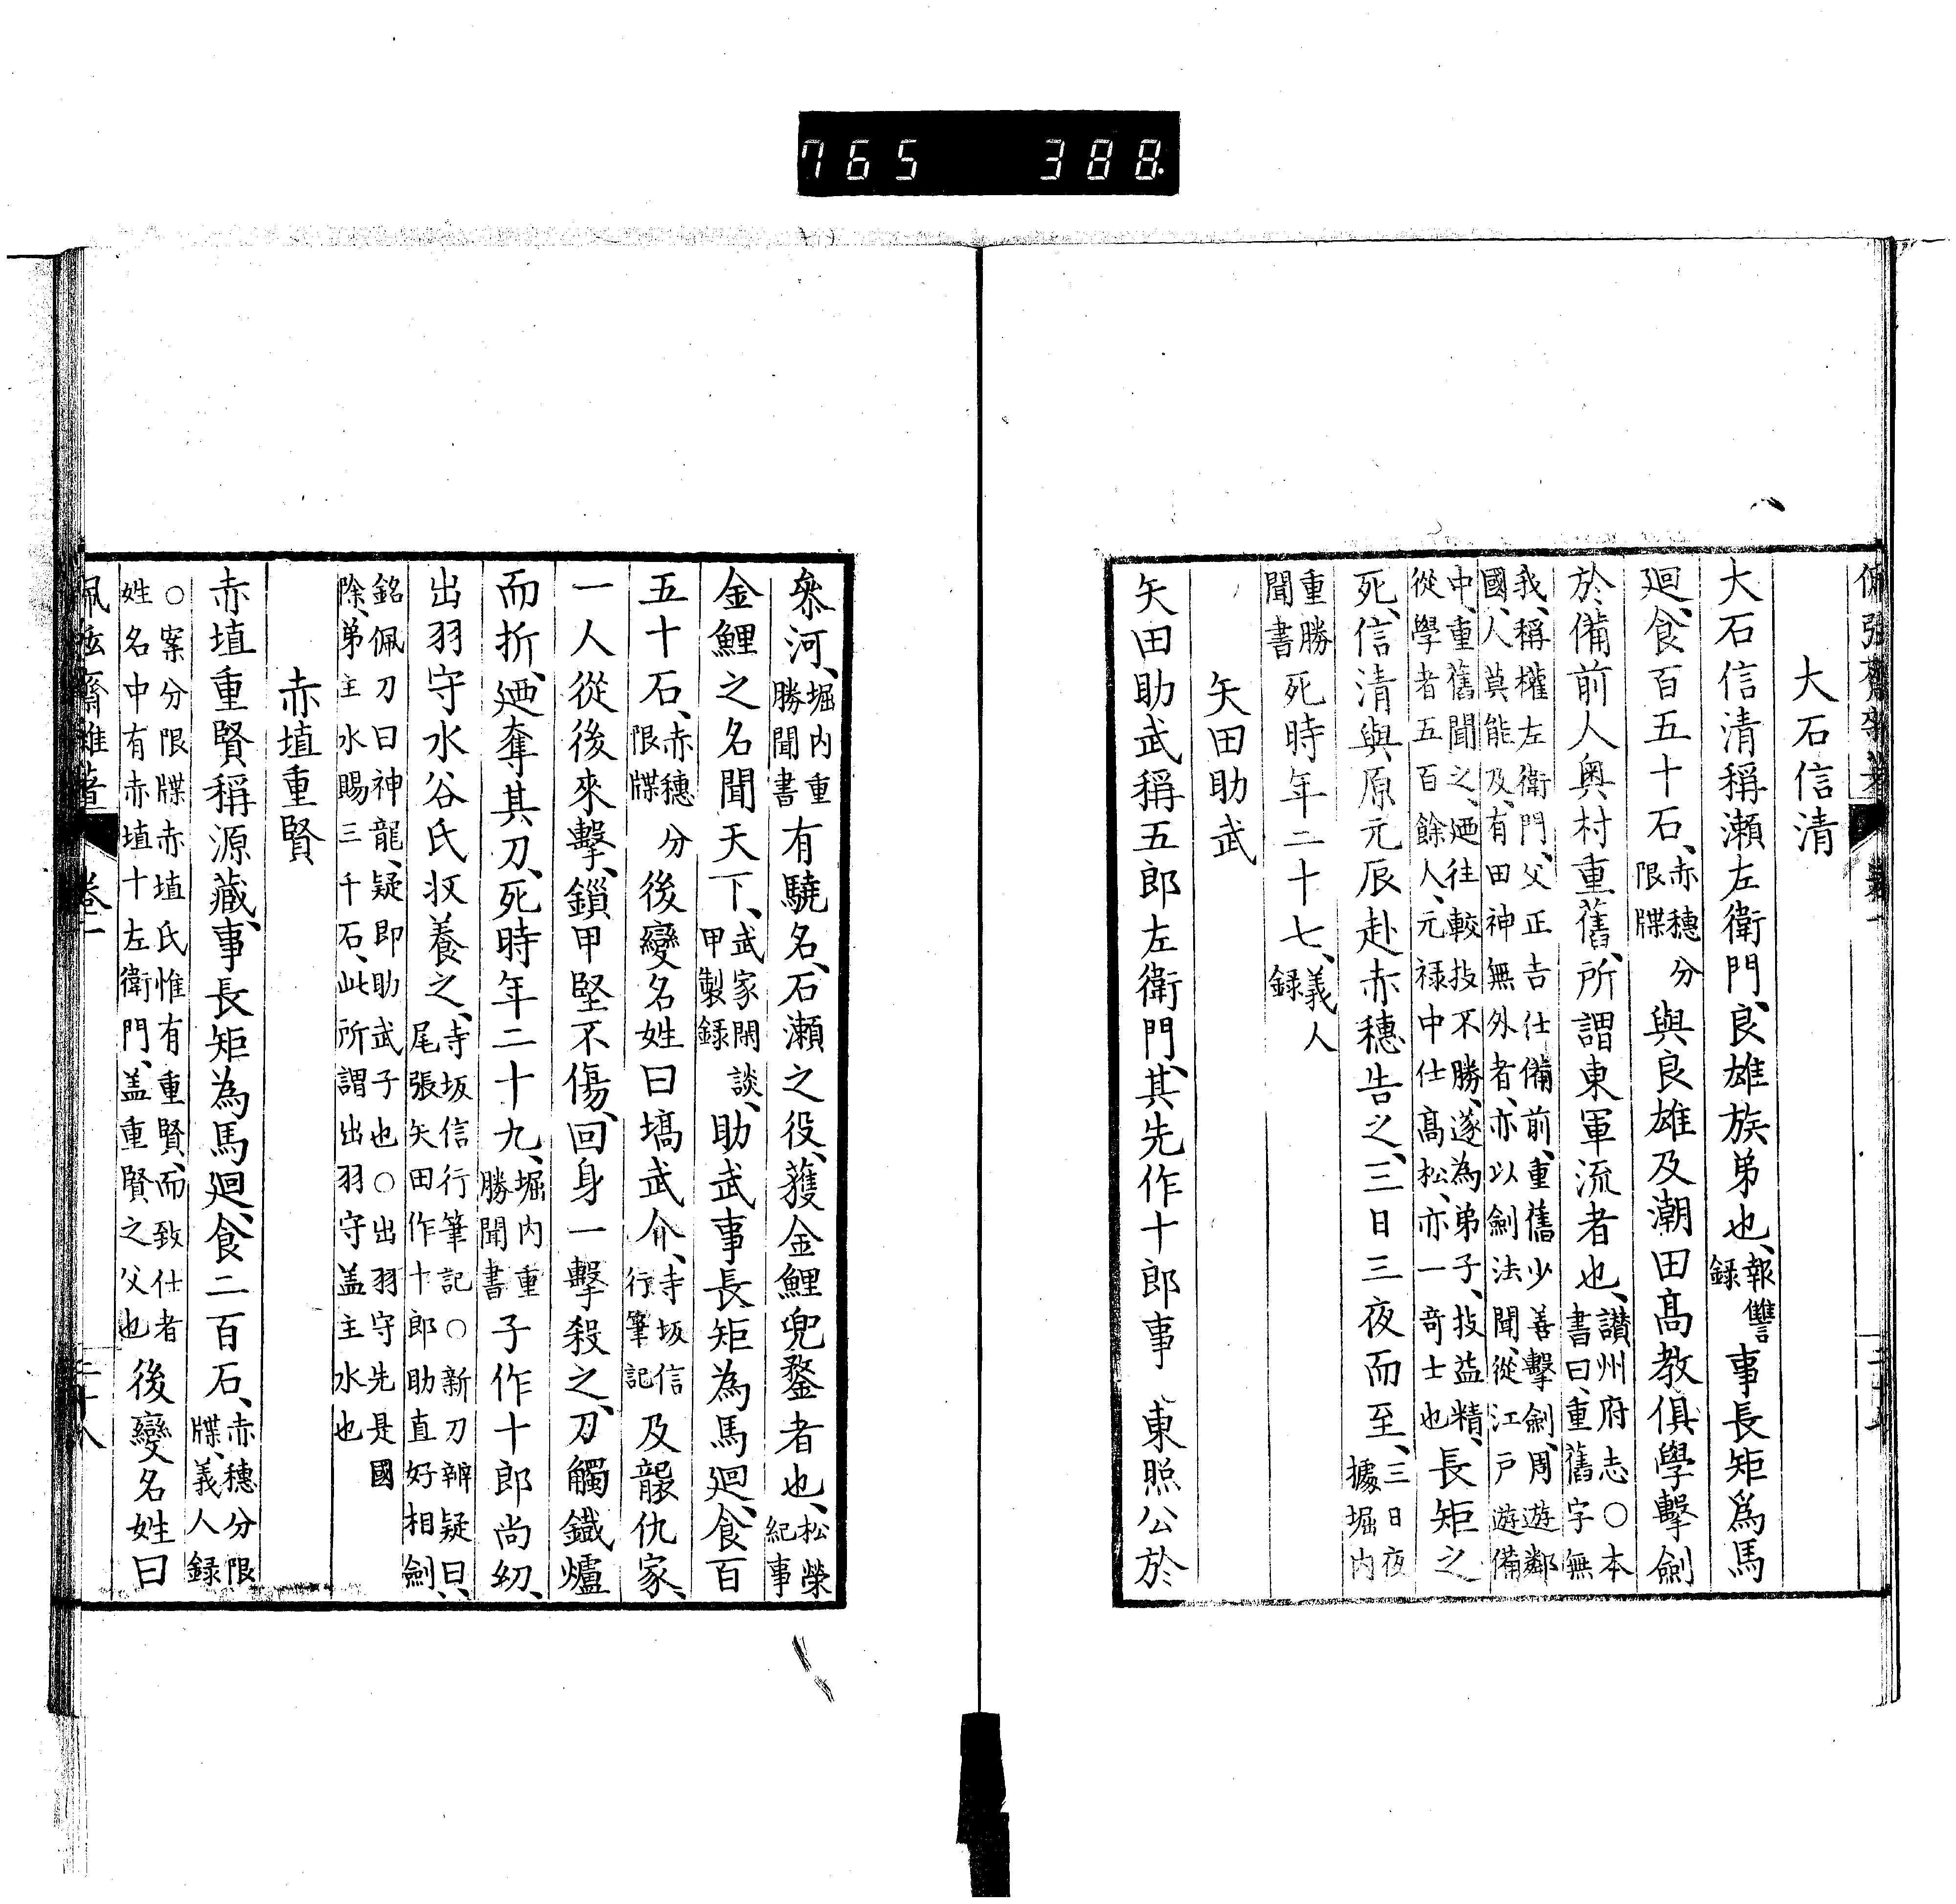 765 388
大石信清
大石信清稱瀬左衛門、良雄族弟也、報讐録事長矩爲馬
廻、食百五十石、赤穗分限牒與良雄及潮田髙教俱學擊劍
於備前人奥村重舊、所謂東軍流者也、讃州府志○本書曰、重舊字無
我、稱權左衛門、父正吉仕備前、重舊少善擊劍、周遊鄰國、人莫能及、有田神無外者、亦以劍法聞、從江戸遊備
中、重舊聞之、廼往較技不勝、遂為弟子、技益精、從學者五百餘人、元禄中仕髙松、亦一奇士也長矩之
死、信清與原元辰赴赤穗告之、三日三夜而至、三日夜據堀内
重勝聞書死時年二十七、義人録
矢田助武
矢田助武稱五郎左衛門、其先作十郎事 東照公於
叅河、堀内重勝聞書有驍名、石瀬之役、獲金鯉兜鍪者也、松榮紀事
金鯉之名聞天下、武家閑談、甲製録助武事長矩為馬廻、食百
五十石、赤穗分限牒後變名姓曰塙武介、寺坂信行筆記及襲仇家、
一人從後來擊、鎻甲堅不傷、回身一擊殺之、刀觸鐵爐
而折、廼奪其刀、死時年二十九、堀内重勝聞書子作十郎尚幼、
出羽守水谷氏収養之、寺坂信行筆記○新刀辨疑曰、尾張矢田作十郎助直好相劍、
銘佩刀曰神龍、疑即助武子也○出羽守先是國除、弟主水賜三千石、此所謂出羽守盖主水也
赤埴重賢
赤埴重賢稱源藏、事長矩為馬廻、食二百石、赤穗分限牒、義人録
○案分限牒赤埴氏惟有重賢、而致仕者姓名中有赤埴十左衛門、盖重賢之父也後變名姓曰
卷一